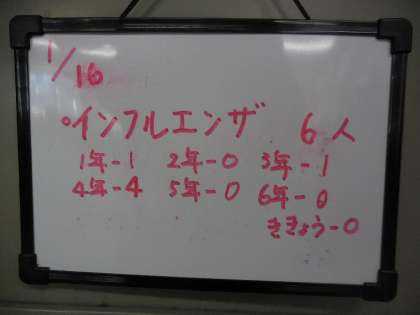 1/16
•インフルエンザ 6人
1年-1 2年-0 3年-1
4年-4 5年-0 6年-0
ききょう-0